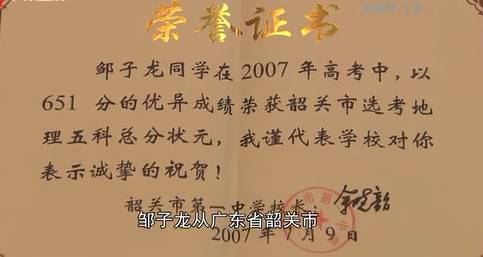 荣誉证书
邹子龙同学在2007年高考中，以
651分的优异成绩荣获韶关市选考地
理五科总分状元，我谨代表学校对你
表示诚挚的祝贺！
韶关市第一中学校长：
邹子龙从广东省韶关市
2007年7月9日